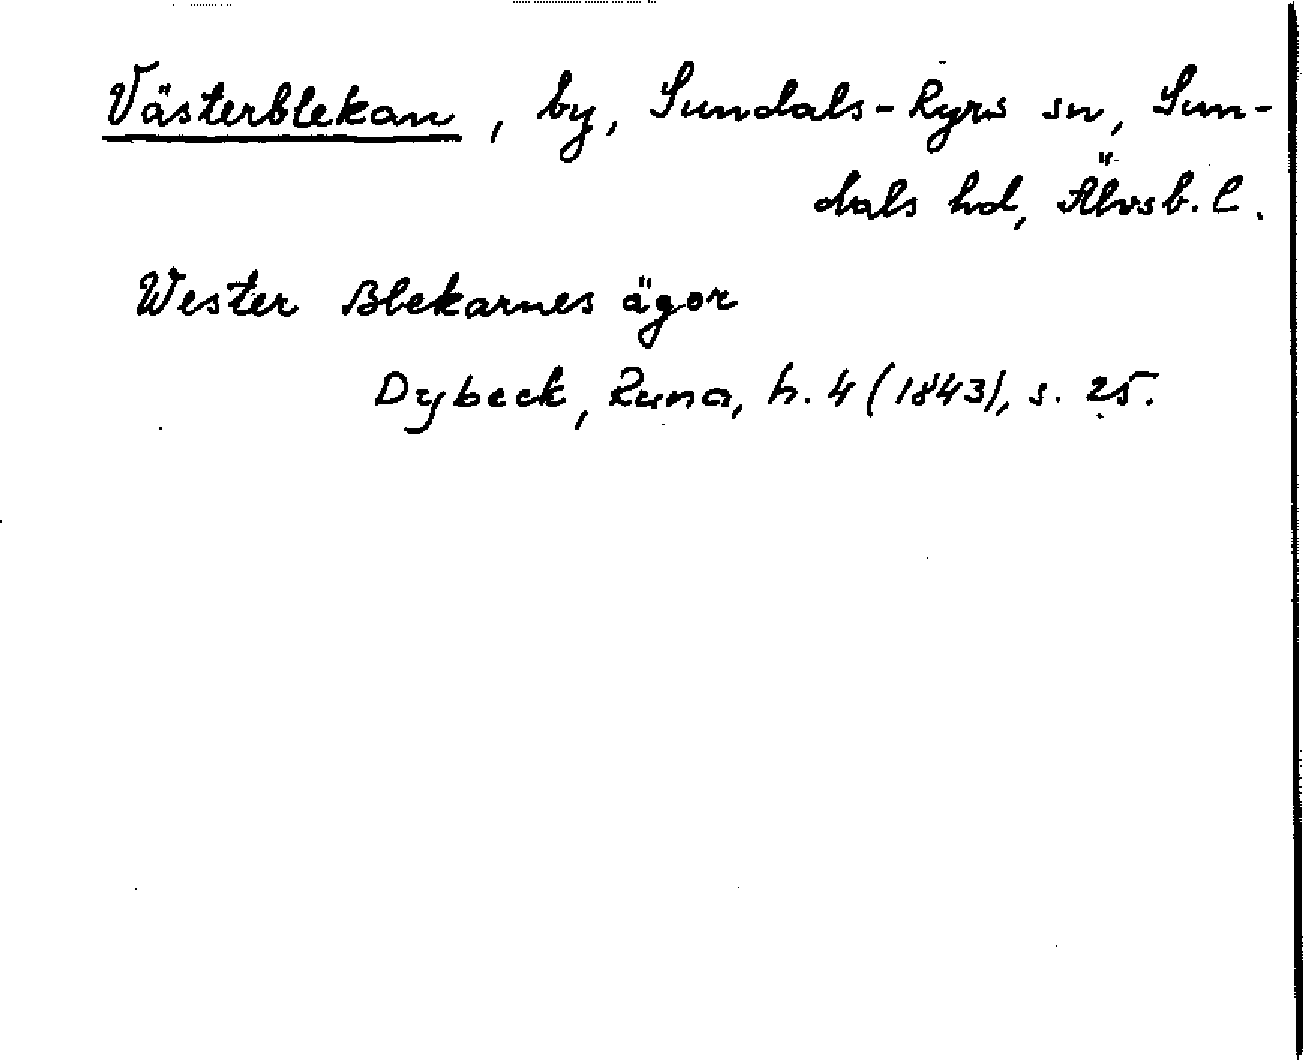 Västerblekan, by, Sundals-Ryrs sn, Sun-
dals hd, Älvsb. l.
Wester Blekarnes ägor
Dybeck, Runa, h. 4 (1843), s. 25.